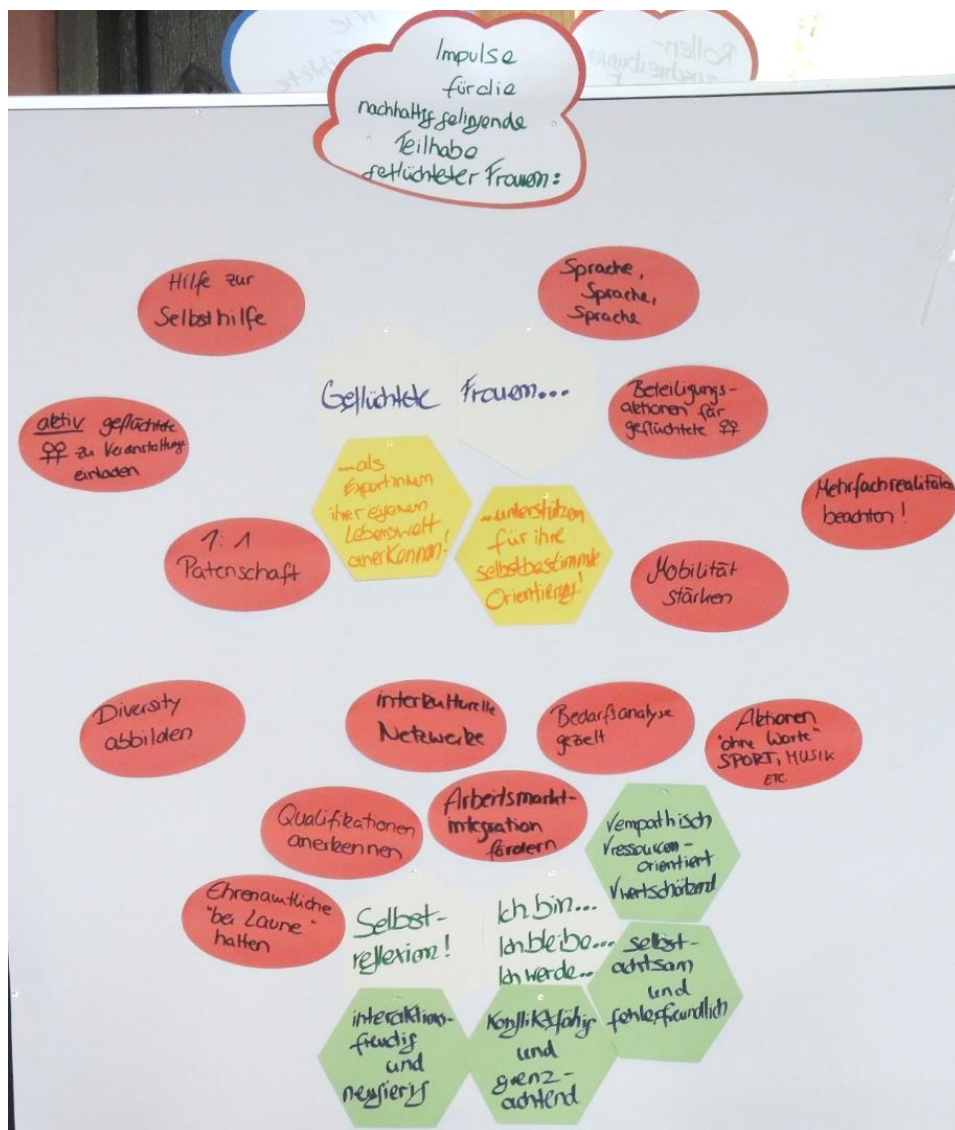 Wie
Rollen-
zuschreibungen
Impulse
für die
nachhaltig gelingende
Teilhabe
geflüchteter Frauen:
Hilfe zur
Selbsthilfe
Sprache,
Sprache,
Sprache
Geflüchtete Frauen...
Beteiligungs-
aktionen für
geflüchtete ♀♀
aktiv geflüchtete
♀♀ zu Veranstaltungen
einladen
...als
Expertinnen
ihrer eigenen
Lebenswelt
anerkennen!
...unterstützen
für ihre
selbstbestimmte
Orientierung!
Mehrfachrealitäten
beachten!
1:1
Patenschaft
Mobilität
stärken
Diversity
abbilden
interkulturelle
Netzwerke
Bedarfsanalyse
gezielt
Aktionen
"ohne Worte"
SPORT, MUSIK
ETC
Qualifikationen
anerkennen
Arbeitsmarkt-
integration
fördern
√empathisch
√ressourcen-
orientiert
√wertschätzend
Ehrenamtliche
"bei Laune"
halten
Selbst-
reflexion!
Ich bin...
Ich bleibe...
Ich werde...
selbst-
achtsam
und
fehlerfreundlich
interaktions-
freudig
und
neugierig
Konfliktfähig
und
grenz-
achtend